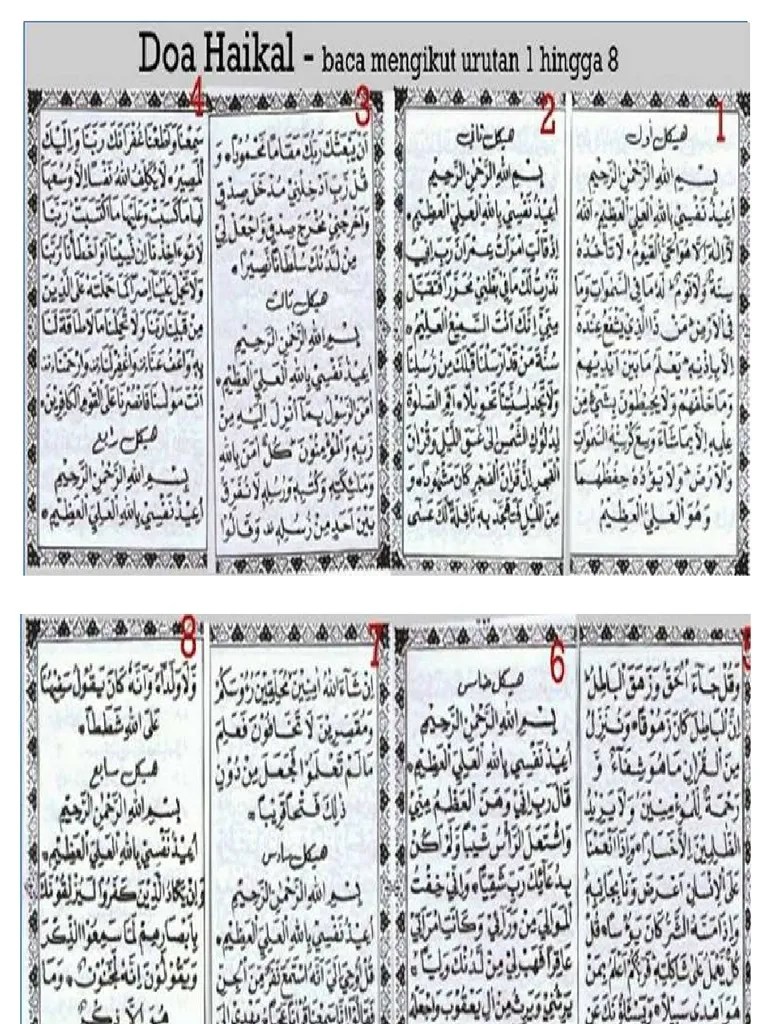 Doa Haikal - baca mengikut urutan 1 hingga 8
1
هيكل اول
بِسْمِ اللهِ الرَّحْمٰنِ الرَّحِيْمِ
اُعِيْذُ نَفْسِيْ بِاللهِ الْعَلِيِّ الْعَظِيْمِ اَللهُ
لَا اِلٰهَ اِلَّا هُوَ الْحَيُّ الْقَيُّوْمُ لَا تَأْخُذُهُ
سِنَةٌ وَّلَا نَوْمٌ لَهُ مَا فِي السَّمٰوَاتِ وَمَا
فِي الْاَرْضِ مَنْ ذَا الَّذِيْ يَشْفَعُ عِنْدَهُ
اِلَّا بِاِذْنِهِ يَعْلَمُ مَا بَيْنَ اَيْدِيْهِمْ
وَمَا خَلْفَهُمْ وَلَا يُحِيْطُوْنَ بِشَيْءٍ مِنْ
عِلْمِهِ اِلَّا بِمَا شَاءَ وَسِعَ كُرْسِيُّهُ السَّمٰوَاتِ
وَالْاَرْضَ وَلَا يَؤُدُهُ حِفْظُهُمَا
وَهُوَ الْعَلِيُّ الْعَظِيْمُ
2
بِسْمِ اللهِ الرَّحْمٰنِ الرَّحِيْمِ
اُعِيْذُ نَفْسِيْ بِاللهِ الْعَلِيِّ الْعَظِيْمِ
اِذْ قَالَتِ امْرَاَتُ عِمْرَانَ رَبِّ اِنِّيْ
نَذَرْتُ لَكَ مَا فِيْ بَطْنِيْ مُحَرَّرًا فَتَقَبَّلْ
مِنِّيْ اِنَّكَ اَنْتَ السَّمِيْعُ الْعَلِيْمُ
سُنَّةَ مَنْ قَدْ اَرْسَلْنَا قَبْلَكَ مِنْ رُسُلِنَا
وَلَا تَجِدُ لِسُنَّتِنَا تَحْوِيْلًا اَقِمِ الصَّلٰوةَ
لِدُلُوْكِ الشَّمْسِ اِلٰى غَسَقِ اللَّيْلِ وَقُرْاٰنَ
الْفَجْرِ اِنَّ قُرْاٰنَ الْفَجْرِ كَانَ مَشْهُوْدًا وَ
مِنَ اللَّيْلِ فَتَهَجَّدْ بِهِ نَافِلَةً لَّكَ عَسٰى
3
اَنْ يَّبْعَثَكَ رَبُّكَ مَقَامًا مَّحْمُوْدًا وَ
قُلْ رَّبِّ اَدْخِلْنِيْ مُدْخَلَ صِدْقٍ
وَّاَخْرِجْنِيْ مُخْرَجَ صِدْقٍ وَّاجْعَلْ لِّيْ
مِنْ لَّدُنْكَ سُلْطَانًا نَّصِيْرًا
هيكل ثالث
بِسْمِ اللهِ الرَّحْمٰنِ الرَّحِيْمِ
اُعِيْذُ نَفْسِيْ بِاللهِ الْعَلِيِّ الْعَظِيْمِ
اٰمَنَ الرَّسُوْلُ بِمَا اُنْزِلَ اِلَيْهِ مِنْ
رَّبِّهِ وَالْمُؤْمِنُوْنَ كُلٌّ اٰمَنَ بِاللهِ
وَمَلٰئِكَتِهِ وَكُتُبِهِ وَرُسُلِهِ لَا نُفَرِّقُ
بَيْنَ اَحَدٍ مِّنْ رُّسُلِهِ وَقَالُوْا
4
سَمِعْنَا وَاَطَعْنَا غُفْرَانَكَ رَبَّنَا وَاِلَيْكَ
الْمَصِيْرُ لَا يُكَلِّفُ اللهُ نَفْسًا اِلَّا وُسْعَهَا
لَهَا مَا كَسَبَتْ وَعَلَيْهَا مَا اكْتَسَبَتْ رَبَّنَا
لَا تُؤَاخِذْنَا اِنْ نَّسِيْنَا اَوْ اَخْطَأْنَا رَبَّنَا
وَلَا تَحْمِلْ عَلَيْنَا اِصْرًا كَمَا حَمَلْتَهُ عَلَى الَّذِيْنَ
مِنْ قَبْلِنَا رَبَّنَا وَلَا تُحَمِّلْنَا مَا لَا طَاقَةَ لَنَا
بِهِ وَاعْفُ عَنَّا وَاغْفِرْ لَنَا وَارْحَمْنَا
اَنْتَ مَوْلٰنَا فَانْصُرْنَا عَلَى الْقَوْمِ الْكَافِرِيْنَ
هيكل رابع
بِسْمِ اللهِ الرَّحْمٰنِ الرَّحِيْمِ
اُعِيْذُ نَفْسِيْ بِاللهِ الْعَلِيِّ الْعَظِيْمِ
5
وَقُلْ جَاءَ الْحَقُّ وَزَهَقَ الْبَاطِلُ
اِنَّ الْبَاطِلَ كَانَ زَهُوْقًا وَنُنَزِّلُ
مِنَ الْقُرْاٰنِ مَا هُوَ شِفَاءٌ وَّ
رَحْمَةٌ لِّلْمُؤْمِنِيْنَ وَلَا يَزِيْدُ
الظّٰلِمِيْنَ اِلَّا خَسَارًا وَاِذَا اَنْعَمْنَا
عَلَى الْاِنْسَانِ اَعْرَضَ وَنَاٰ بِجَانِبِهِ
وَاِذَا مَسَّهُ الشَّرُّ كَانَ يَؤُسًا قُلْ
كُلٌّ يَّعْمَلُ عَلٰى شَاكِلَتِهِ فَرَبُّكُمْ اَعْلَمُ بِمَنْ
هُوَ اَهْدٰى سَبِيْلًا وَيَسْئَلُوْنَكَ عَنِ
6
هيكل خامس
بِسْمِ اللهِ الرَّحْمٰنِ الرَّحِيْمِ
اُعِيْذُ نَفْسِيْ بِاللهِ الْعَلِيِّ الْعَظِيْمِ
قَالَ رَبِّ اِنِّيْ وَهَنَ الْعَظْمُ مِنِّيْ
وَاشْتَعَلَ الرَّأْسُ شَيْبًا وَّلَمْ اَكُنْ
بِدُعَائِكَ رَبِّ شَقِيًّا وَاِنِّيْ خِفْتُ
الْمَوَالِيَ مِنْ وَّرَائِيْ وَكَانَتِ امْرَاَتِيْ
عَاقِرًا فَهَبْ لِيْ مِنْ لَّدُنْكَ وَلِيًّا
يَرِثُنِيْ وَيَرِثُ مِنْ اٰلِ يَعْقُوْبَ وَاجْعَلْهُ
7
اِنْ شَاءَ اللهُ اٰمِنِيْنَ مُحَلِّقِيْنَ رُءُوْسَكُمْ
وَمُقَصِّرِيْنَ لَا تَخَافُوْنَ فَعَلِمَ
مَا لَمْ تَعْلَمُوْا فَجَعَلَ مِنْ دُوْنِ
ذٰلِكَ فَتْحًا قَرِيْبًا
هيكل سادس
بِسْمِ اللهِ الرَّحْمٰنِ الرَّحِيْمِ
اُعِيْذُ نَفْسِيْ بِاللهِ الْعَلِيِّ الْعَظِيْمِ
قُلْ اُوْحِيَ اِلَيَّ اَنَّهُ اسْتَمَعَ نَفَرٌ مِّنَ الْجِنِّ
8
وَلَا وَلَدًا وَاَنَّهُ كَانَ يَقُوْلُ سَفِيْهُنَا
عَلَى اللهِ شَطَطًا
هيكل سابع
بِسْمِ اللهِ الرَّحْمٰنِ الرَّحِيْمِ
اُعِيْذُ نَفْسِيْ بِاللهِ الْعَلِيِّ الْعَظِيْمِ
وَاِنْ يَّكَادُ الَّذِيْنَ كَفَرُوْا لَيُزْلِقُوْنَكَ
بِاَبْصَارِهِمْ لَمَّا سَمِعُوا الذِّكْرَ
وَيَقُوْلُوْنَ اِنَّهُ لَمَجْنُوْنٌ وَمَا
هُوَ اِلَّا ذِكْرٌ